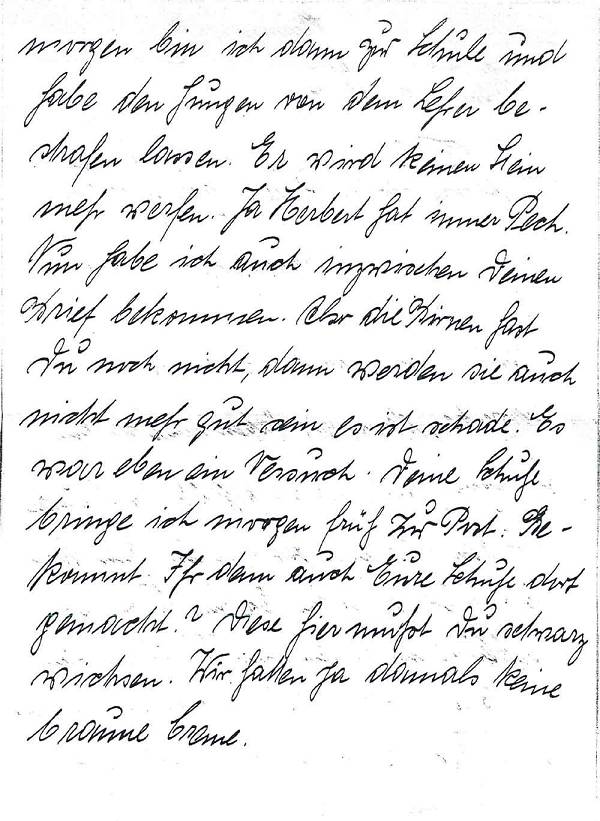 morgen bin ich dann zur Schule und
habe den Jungen von dem Lehrer be-
strafen lassen. Er wird keinen Stein
mehr werfen. Ja Herbert hat immer Pech.
Nun habe ich auch inzwischen Deinen
Brief bekommen. Also die Birnen hast
Du noch nicht, dann werden sie auch
nicht mehr gut sein es ist schade. Es
war eben ein Versuch. Deine Schuhe
bringe ich morgen früh zur Post. Be-
kommt Ihr denn auch Eure Schuhe dort
gemacht? Diese hier mußt Du schwarz
wichsen. Wir hatten ja damals keine
braune Creme.